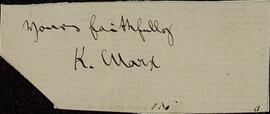 Yours faithfully
K. Marx